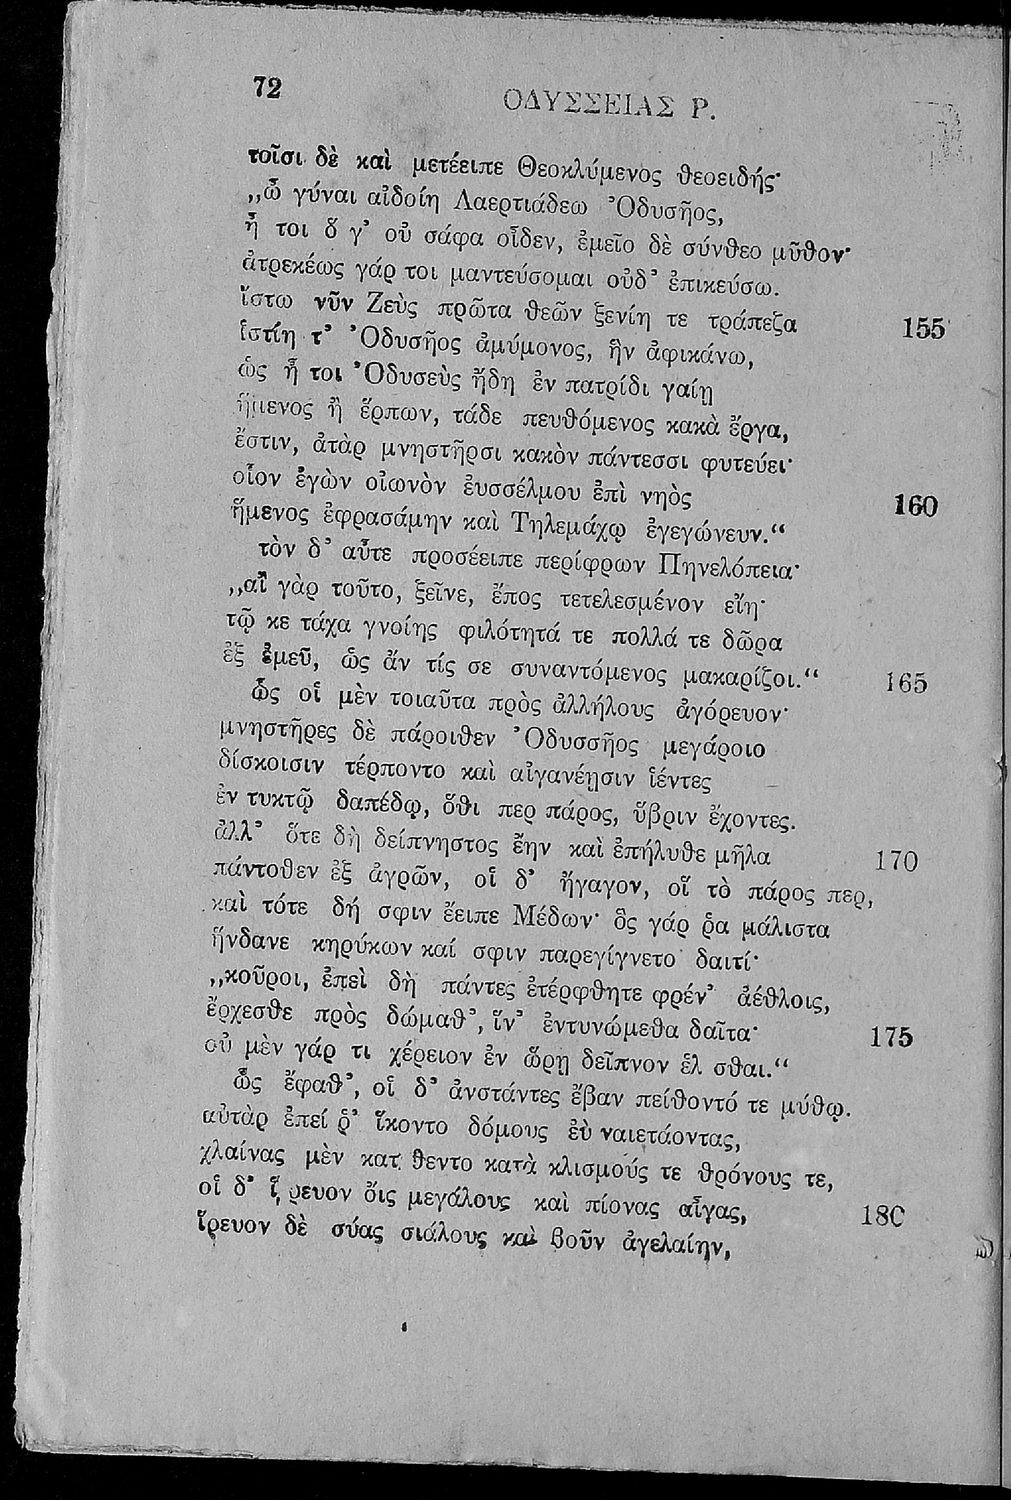 72
ΟΔΥΣΣΕΙΑΣ Ρ.
τοῖσι δὲ καὶ μετέειπε Θεοκλύμενος θεοειδής·
„ὦ γύναι αἰδοίη Λαερτιάδεω Ὀδυσῆος,
ἦ τοι ὅ γ’ οὐ σάφα οἶδεν, ἐμεῖο δὲ σύνθεο μῦθον·
ἀτρεκέως γάρ τοι μαντεύσομαι οὐδ’ ἐπικεύσω.
ἴστω νῦν Ζεὺς πρῶτα θεῶν ξενίη τε τράπεζα 155
ἱστίη τ’ Ὀδυσῆος ἀμύμονος, ἣν ἀφικάνω,
ὡς ἦ τοι Ὀδυσεὺς ἤδη ἐν πατρίδι γαίῃ
ἥμενος ἢ ἕρπων, τάδε πευθόμενος κακὰ ἔργα,
ἔστιν, ἀτὰρ μνηστῆρσι κακὸν πάντεσσι φυτεύει·
οἷον ἐγὼν οἰωνὸν ἐυσσέλμου ἐπὶ νηὸς 160
ἥμενος ἐφρασάμην καὶ Τηλεμάχῳ ἐγεγώνευν.“
τὸν δ’ αὖτε προσέειπε περίφρων Πηνελόπεια·
„αἲ γὰρ τοῦτο, ξεῖνε, ἔπος τετελεσμένον εἴη·
τῷ κε τάχα γνοίης φιλότητά τε πολλά τε δῶρα
ἐξ ἐμεῦ, ὡς ἄν τίς σε συναντόμενος μακαρίζοι.“ 165
ὣς οἱ μὲν τοιαῦτα πρὸς ἀλλήλους ἀγόρευον·
μνηστῆρες δὲ πάροιθεν Ὀδυσσῆος μεγάροιο
δίσκοισιν τέρποντο καὶ αἰγανέῃσιν ἱέντες
ἐν τυκτῷ δαπέδῳ, ὅθι περ πάρος, ὕβριν ἔχοντες.
ἀλλ’ ὅτε δὴ δείπνηστος ἔην καὶ ἐπήλυθε μῆλα 170
πάντοθεν ἐξ ἀγρῶν, οἱ δ’ ἤγαγον, οἳ τὸ πάρος περ,
καὶ τότε δή σφιν ἔειπε Μέδων· ὃς γάρ ῥα μάλιστα
ἥνδανε κηρύκων καί σφιν παρεγίγνετο δαιτί·
„κοῦροι, ἐπεὶ δὴ πάντες ἐτέρφθητε φρέν’ ἀέθλοις,
ἔρχεσθε πρὸς δώμαθ’, ἵν’ ἐντυνώμεθα δαῖτα· 175
οὐ μὲν γάρ τι χέρειον ἐν ὥρῃ δεῖπνον ἑλ σθαι.“
ὣς ἔφαθ’, οἱ δ’ ἀνστάντες ἔβαν πείθοντό τε μύθῳ.
αὐτὰρ ἐπεί ῥ’ ἵκοντο δόμους ἐὺ ναιετάοντας,
χλαίνας μὲν κατ θεντο κατὰ κλισμούς τε θρόνους τε,
οἱ δ’ ἱ ρευον ὄις μεγάλους καὶ πίονας αἶγας, 180
ἵρευον δὲ σύας σιάλους καὶ βοῦν ἀγελαίην,